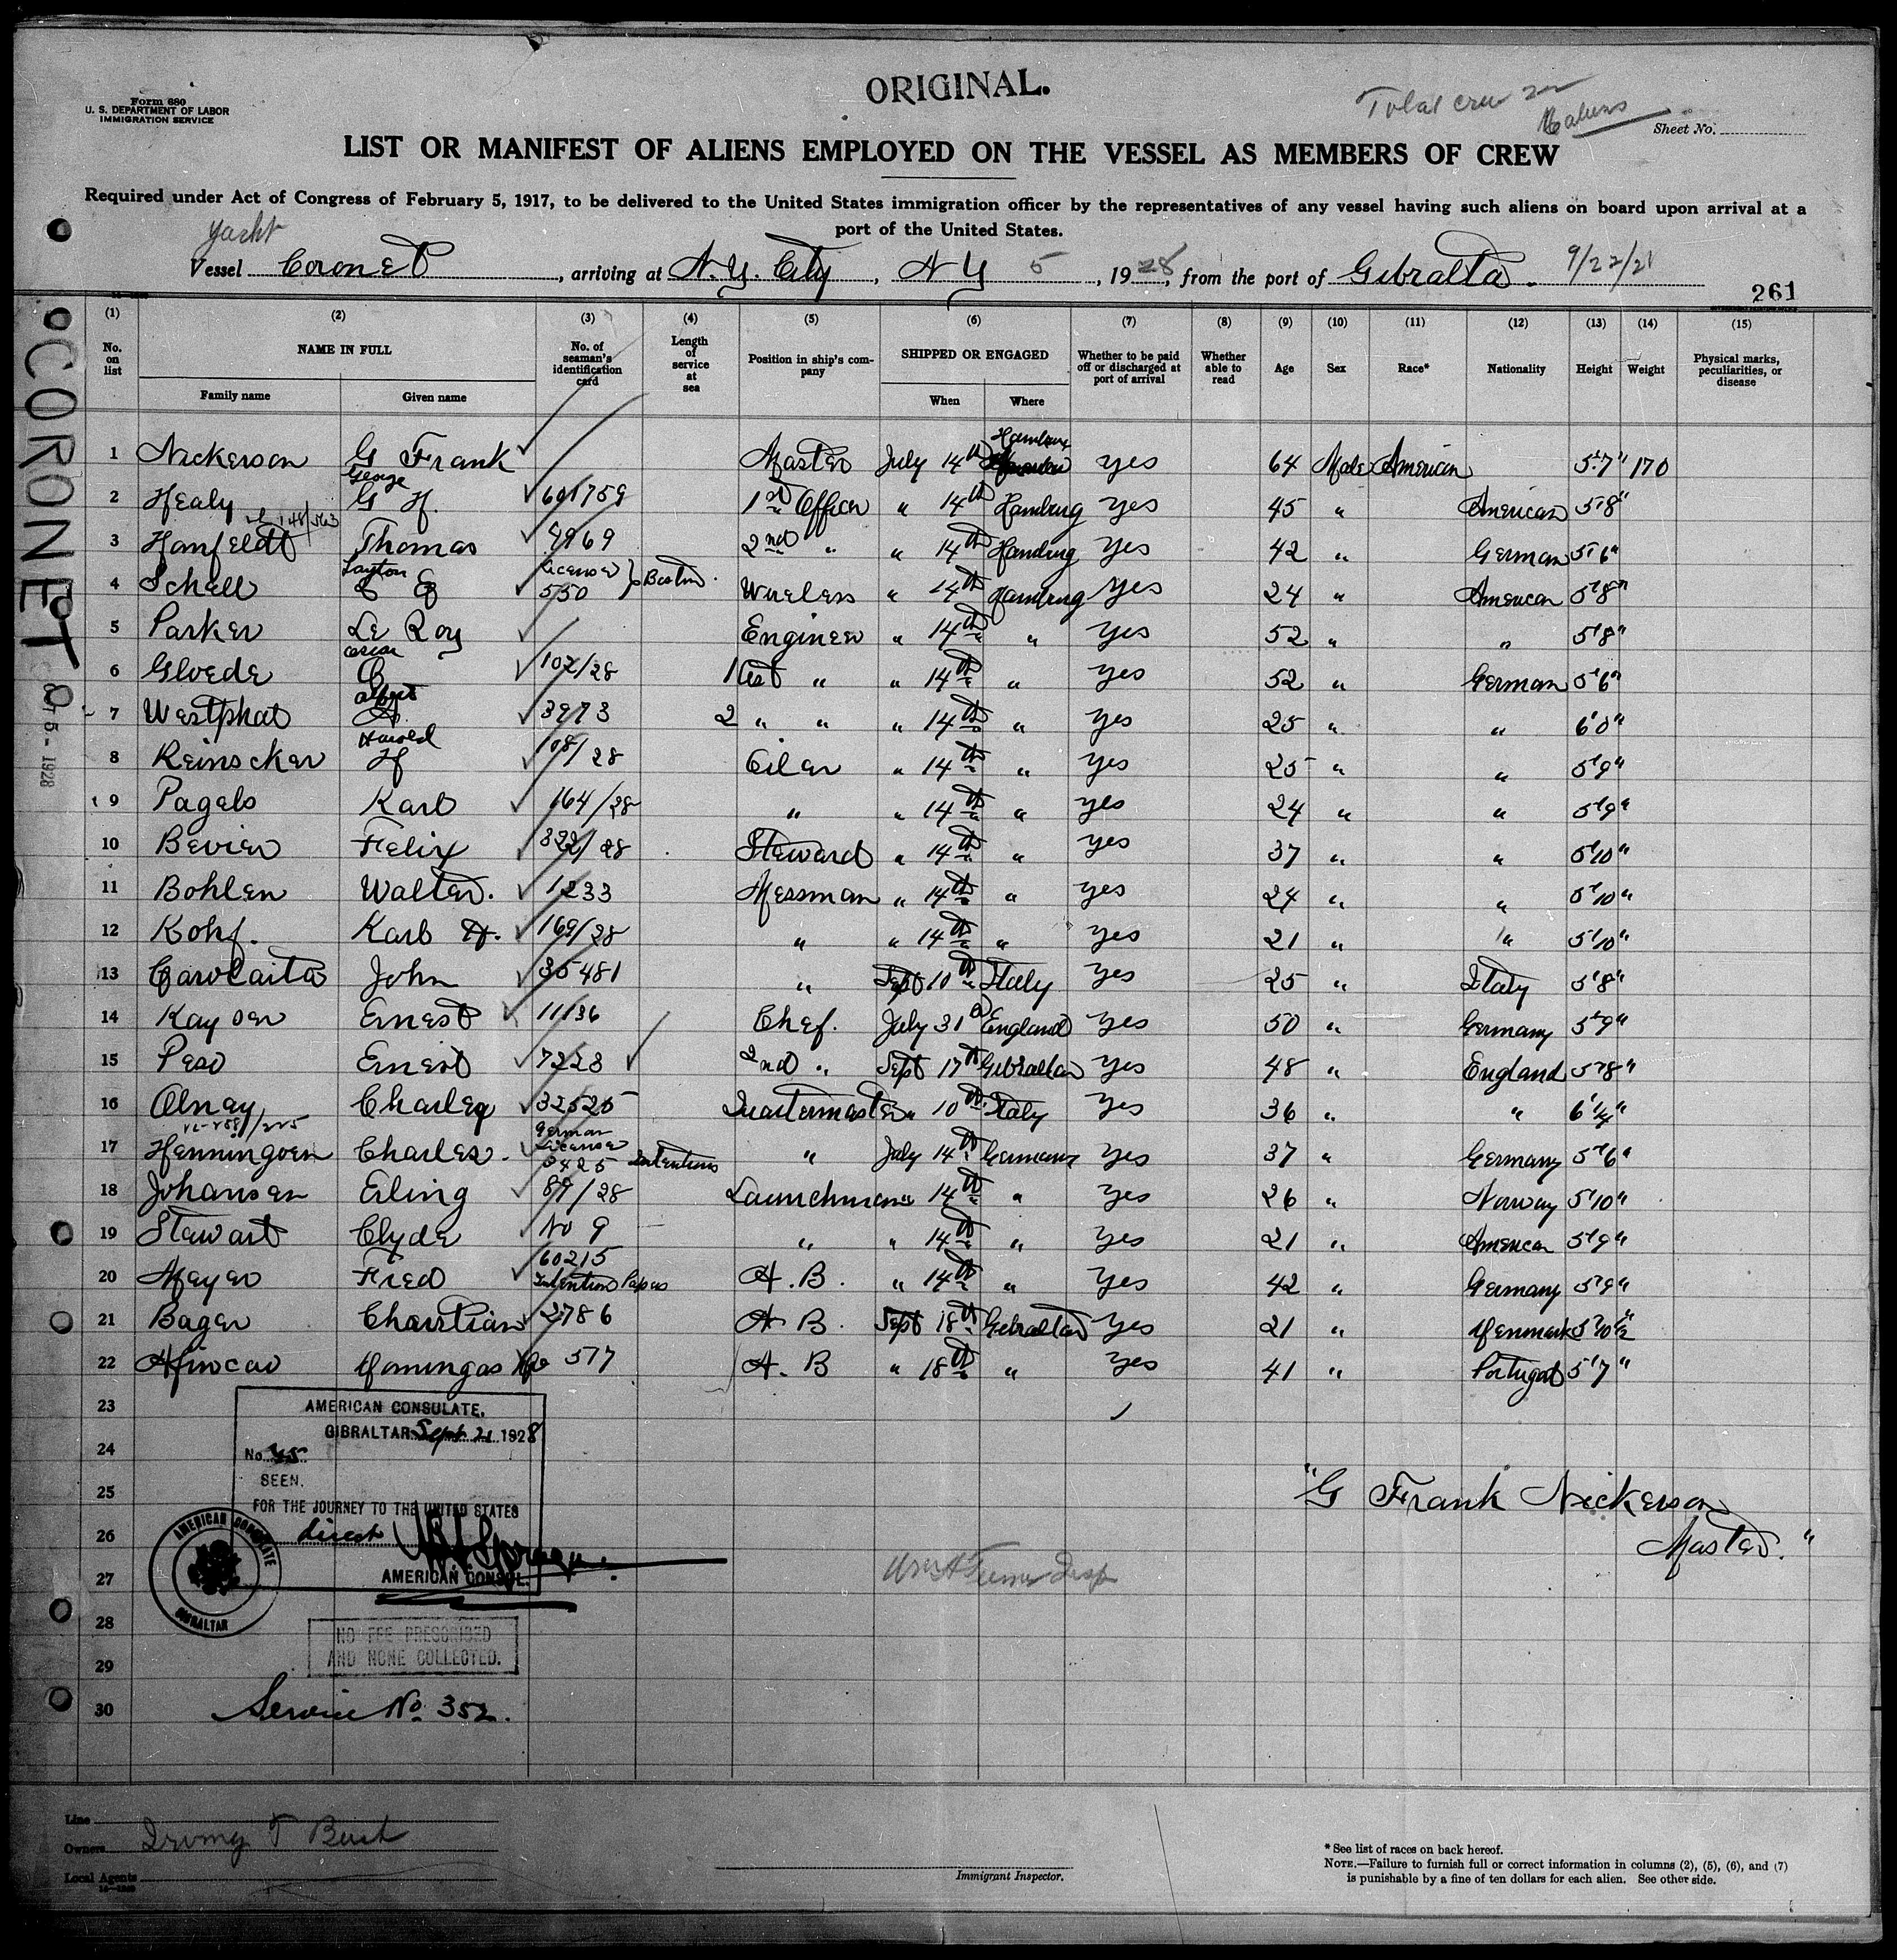 ORIGINAL.
Form 680
U. S. DEPARTMENT OF LABOR
IMMIGRATION SERVICE
Total crew
Sheet No.
LIST OR MANIFEST OF ALIENS EMPLOYED ON THE VESSEL AS MEMBERS OF CREW
Required under Act of Congress of February 5, 1917, to be delivered to the United States immigration officer by the representatives of any vessel having such aliens on board upon arrival at a
port of the United States.
yacht
Vessel Coronet, arriving at N.Y. City, N Y 5, 1928, from the port of Gibralta. 9/22/21
261
CORONET
5 - 1928
(1) (2) (3) (4) (5) (6) (7) (8) (9) (10) (11) (12) (13) (14) (15)
No. on list NAME IN FULL No. of seaman's identification card Length of service at sea Position in ship's company SHIPPED OR ENGAGED Whether to be paid off or discharged at port of arrival Whether able to read Age Sex Race* Nationality Height Weight Physical marks, peculiarities, or disease
Family name Given name When Where
1 Nickerson G Frank Master July 14th Hamburg yes 64 Male American 5'7" 170
2 Healy George G H. 601759 1st Officer " 14th Hamburg yes 45 " American 5'8"
3 Hanfeldt Thomas 9969 2nd " " 14th Hamburg yes 42 " German 5'6"
4 Schell Layton E License 550 Boston. Wireless " 14th Hamburg yes 24 " American 5'8"
5 Parker Le Roy Engineer " 14th " yes 52 " " 5'8"
6 Gloede Oscar O 102/28 1st " " 14th " yes 52 " German 5'6"
7 Westphal Albert A. 3973 2 " " " 14th " yes 25 " " 6'0"
8 Reinscker Harold H 108/28 Oiler " 14th " yes 25 " " 5'9"
9 Pagels Karl 164/28 " " 14th " yes 24 " " 5'9"
10 Bevier Felix 322/28 Steward " 14th " yes 37 " " 5'10"
11 Bohlen Walter. 1233 Messman " 14th " yes 24 " " 5'10"
12 Kohf. Karl H. 169/28 " " 14th " yes 21 " " 5'10"
13 Carolaita John 35481 " Sept 10th Italy yes 25 " Italy 5'8"
14 Kayser Ernest 11136 Chef. July 31 England yes 50 " Germany 5'9"
15 Peso Ernest 7223 2nd " Sept 17th Gibraltar yes 48 " England 5'8"
16 Olnay Charley 32525 Quartermaster " 10th Italy yes 36 " " 6'1/4"
17 Henningsen Charles. German License 5425 Intentions " July 14th Germany yes 37 " Germany 5'6"
18 Johansen Erling 89/28 Launchman " 14th " yes 26 " Norway 5'10"
19 Stewart Clyde No 9 " " 14th " yes 21 " American 5'9"
20 Meyer Fred 60215 Intention Papers A.B. " 14th " yes 42 " Germany 5'9"
21 Bager Christian 2786 A.B. Sept 18th Gibraltar yes 21 " Denmark 5'10 1/2"
22 Afincao Domingas 517 A.B " 18th " yes 41 " Portugal 5'7"
23
24
25
26
27
28
29
30
AMERICAN CONSULATE,
GIBRALTAR Sept 21 1928
No. 45
SEEN.
FOR THE JOURNEY TO THE UNITED STATES
direct
AMERICAN CONSUL.
AMERICAN CONSULATE
GIBRALTAR
"G Frank Nickerson
Master."
NO FEE PRESCRIBED
AND NONE COLLECTED.
Service No. 352.
Line
Owners Irving T Bush
Local Agents
Immigrant Inspector.
* See list of races on back hereof.
NOTE.—Failure to furnish full or correct information in columns (2), (5), (6), and (7)
is punishable by a fine of ten dollars for each alien. See other side.